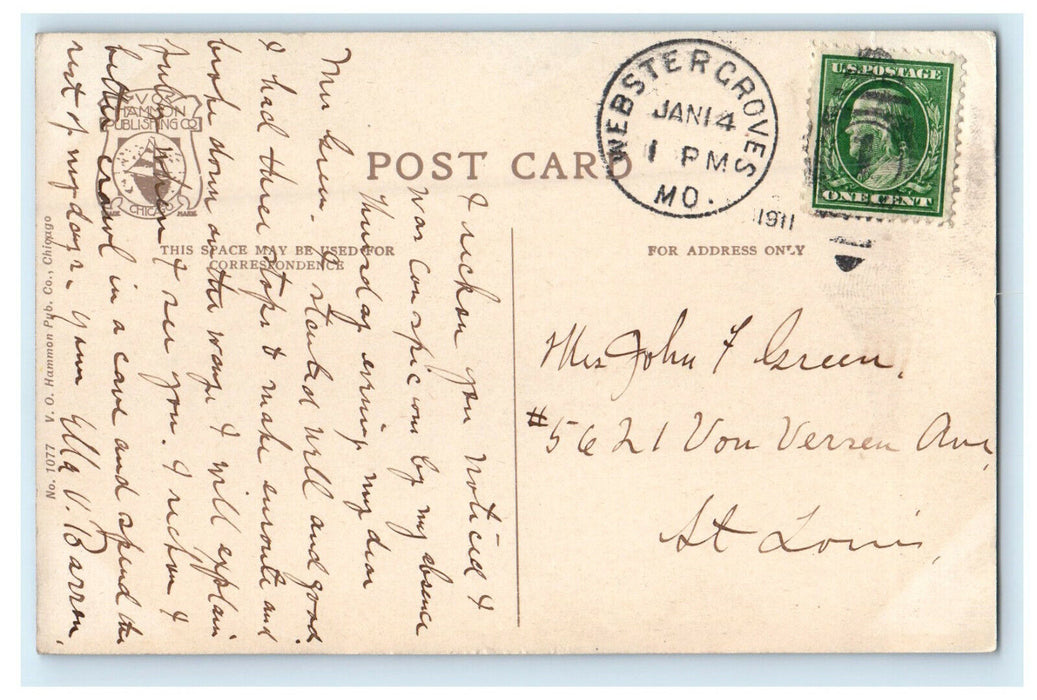 WEBSTER GROVES
JAN 14
1 PM
MO.
1911
U.S. POSTAGE
ONE CENT
V.O.
HAMMON
PUBLISHING CO.
TRADE MARK
CHICAGO
POST CARD
THIS SPACE MAY BE USED FOR
CORRESPONDENCE
FOR ADDRESS ONLY
No. 1077 V. O. Hammon Pub. Co., Chicago
I reckon you noticed I
was conspicious by my absence
Thursday evening my dear
Mrs Green. I started well and good.
I had three stops to make enroute and
broke down on the way. I will explain
fully when I see you. I reckon I
better crawl in a cave and spend the
rest of my days. Yours Ella V. Barron.
Mrs John F Green,
#5621 Von Versen Ave,
St Louis,